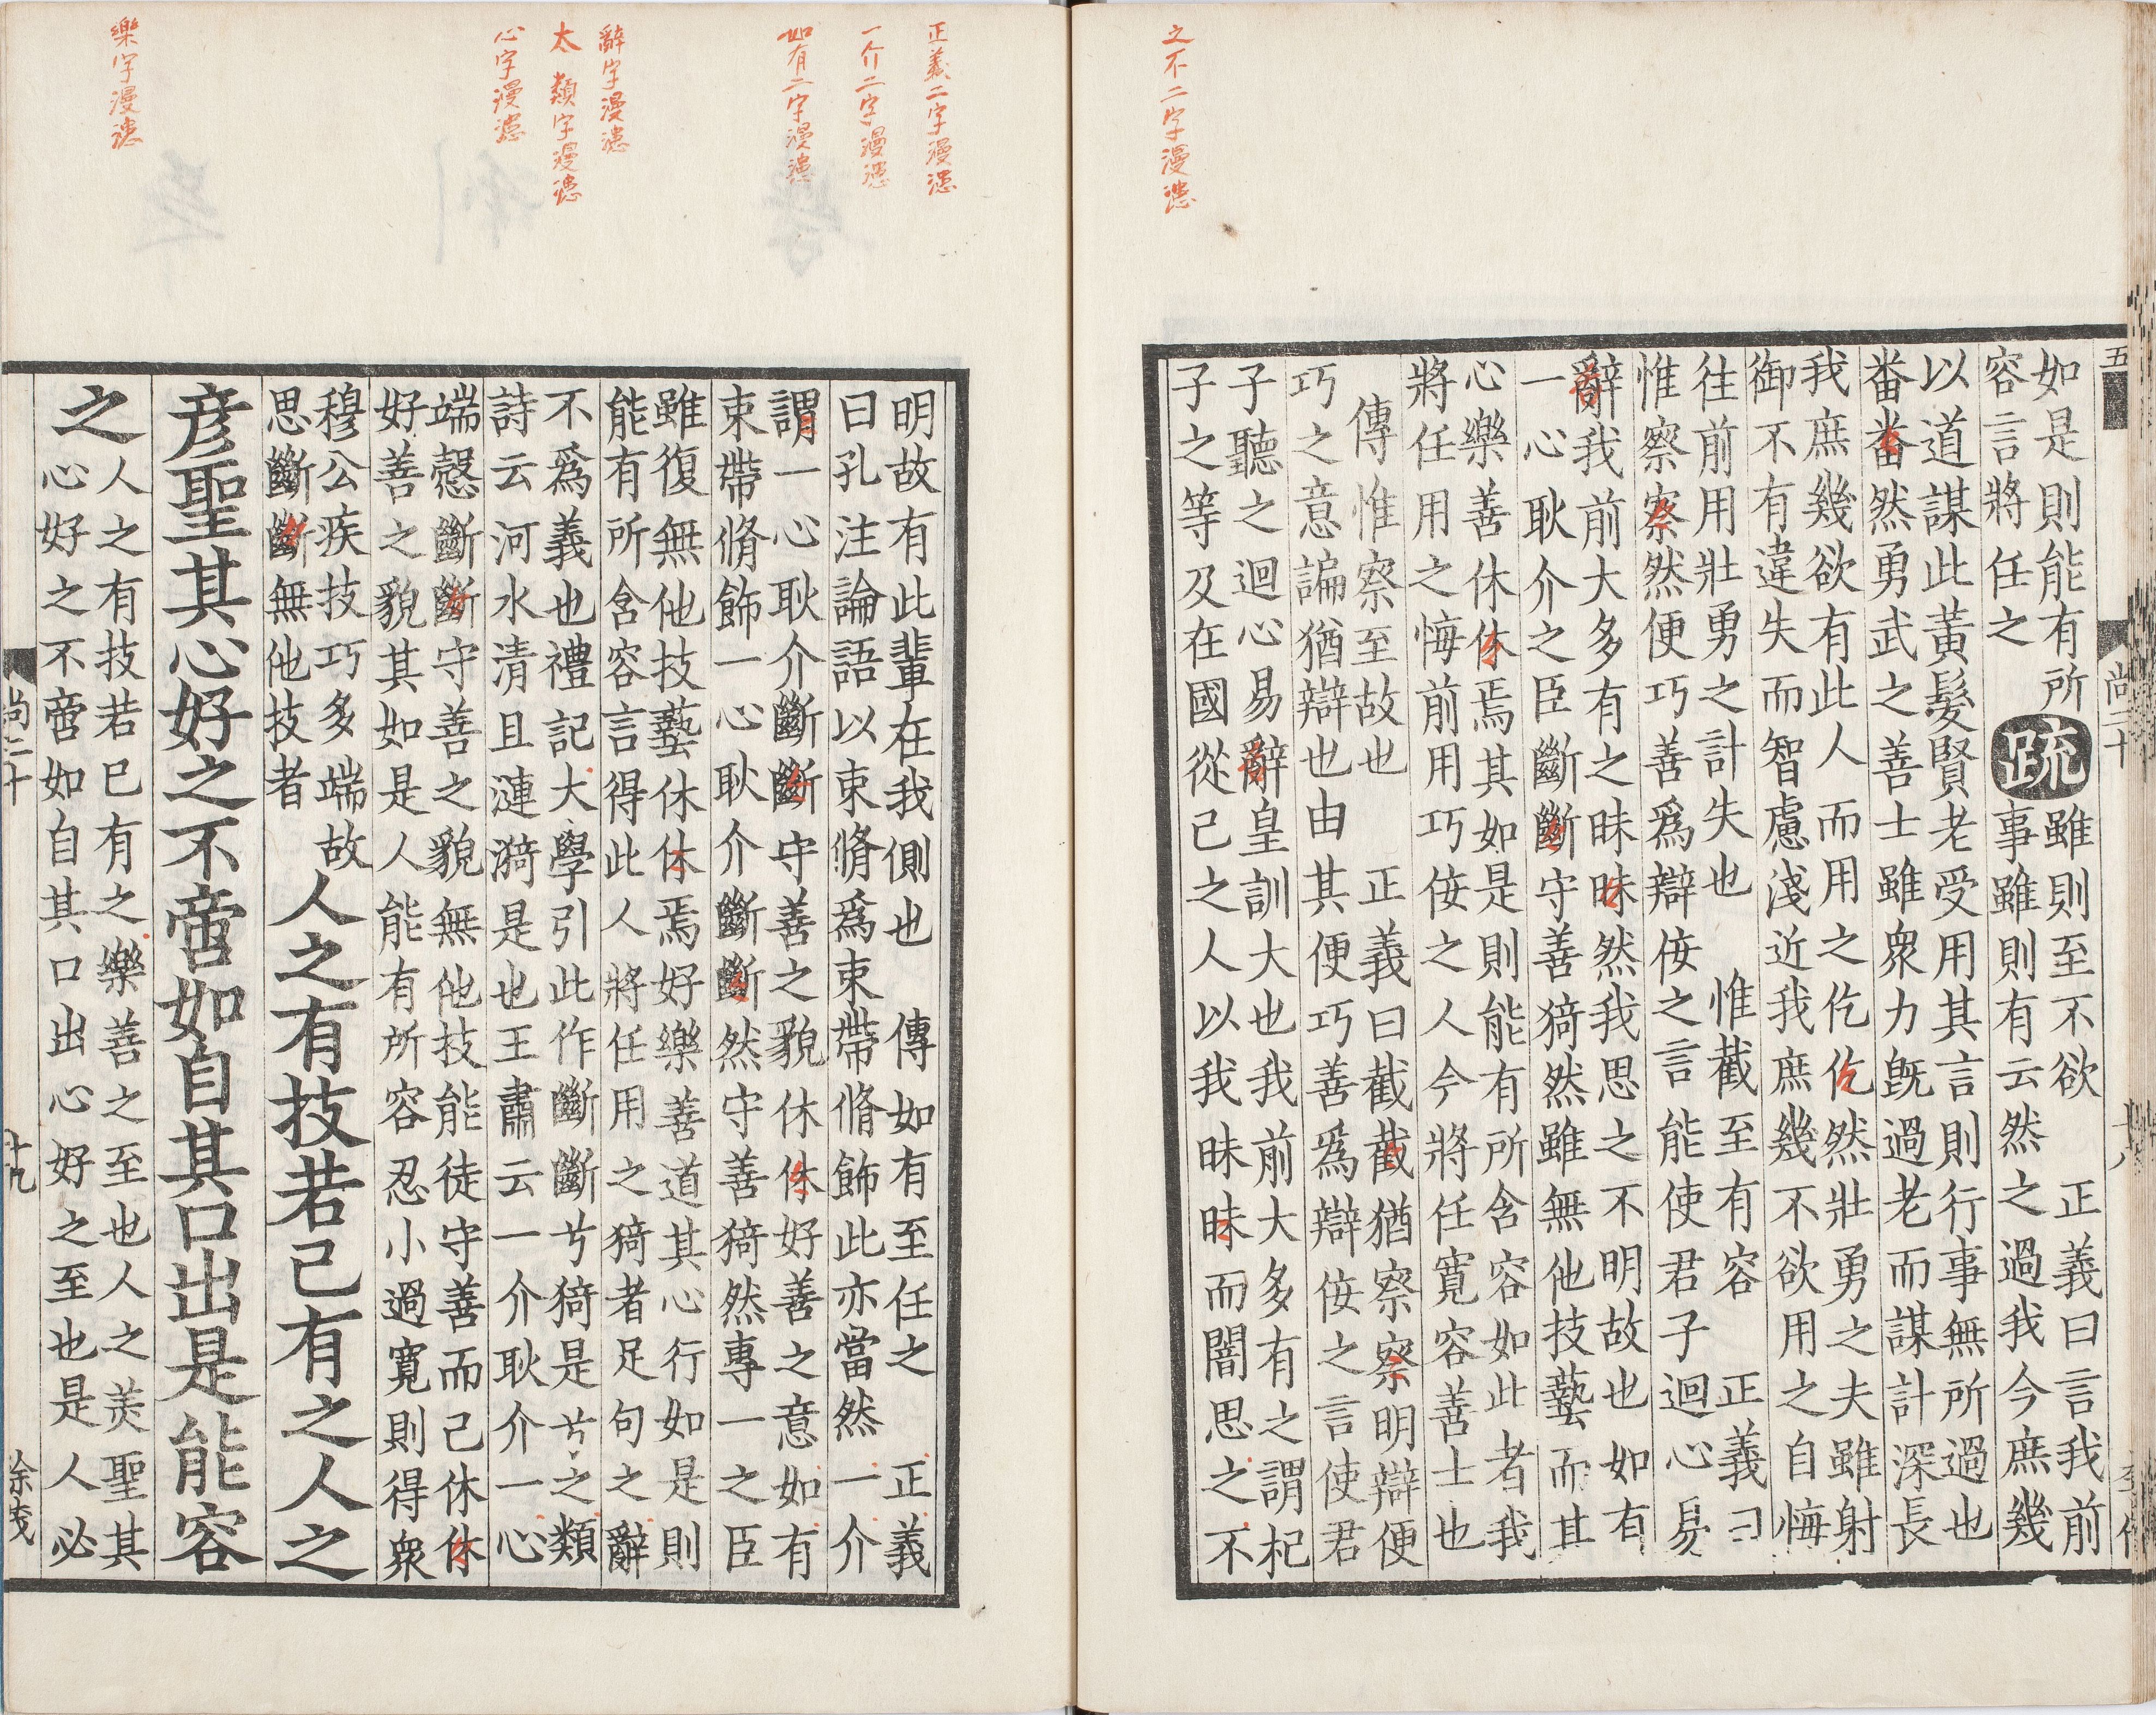 五 尚二十 十八
如是則能有所
容言將任之
疏
雖則至不欲 正義曰言我前
事雖則有云然之過我今庶幾
以道謀此黃髮賢老受用其言則行事無所過也
番番然勇武之善士雖衆力旣過老而謀計深長
我庶幾欲有此人而用之仡仡然壯勇之夫雖射
御不有違失而智慮淺近我庶幾不欲用之自悔
往前用壯勇之計失也 惟截至有容 正義曰
惟察察然便巧善爲辯佞之言能使君子迴心易
辭我前大多有之昧昧然我思之不明故也如有
一心耿介之臣斷斷守善猗然雖無他技藝而其
心樂善休休焉其如是則能有所含容如此者我
將任用之悔前用巧佞之人今將任寬容善士也
傳惟察至故也 正義曰截截猶察察明辯便
巧之意諞猶辯也由其便巧善爲辯佞之言使君
子聽之迴心易辭皇訓大也我前大多有之謂杞
子之等及在國從己之人以我昧昧而闇思之不
之不二字漫漶
正義二字漫漶
一介二字漫漶
如有二字漫漶
辭字漫漶
太 類字漫漶
心字漫漶
樂字漫漶
明故有此輩在我側也 傳如有至任之 正義
曰孔注論語以束脩爲束帶脩飾此亦當然一介
謂一心耿介斷斷守善之貌休休好善之意如有
束帶脩飾一心耿介斷斷然守善猗然專一之臣
雖復無他技藝休休焉好樂善道其心行如是則
能有所含容言得此人將任用之猗者足句之辭
不爲義也禮記大學引此作斷斷兮猗是兮之類
詩云河水清且漣漪是也王肅云一介耿介一心
端慤斷斷守善之貌無他技能徒守善而己休休
好善之貌其如是人能有所容忍小過寬則得衆
穆公疾技巧多端故
思斷斷無他技者
人之有技若已有之人之
彥聖其心好之不啻如自其口出是能容
之
人之有技若巳有之樂善之至也人之美聖其
心好之不啻如自其口出心好之至也是人必
尚二十 十九 徐茂